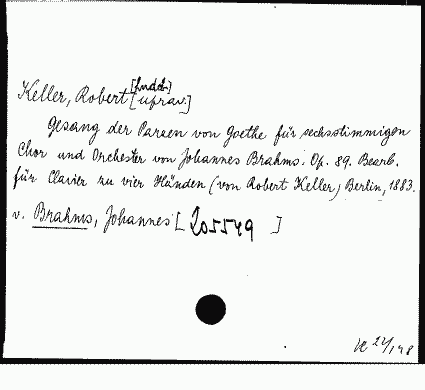 [hudeb]
Keller, Robert [uprav.]
Gesang der Parzen von Goethe für sechsstimmigen
Chor und Orchester von Johannes Brahms. Op. 89. Bearb.
für Clavier zu vier Händen (von Robert Keller) Berlin, 1883.
v. Brahms, Johannes [205549]